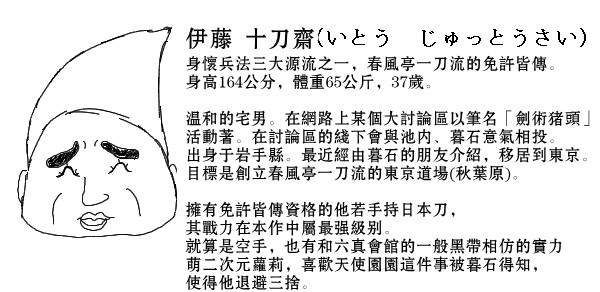 伊藤 十刀齋(いとう じゅっとうさい)
身懷兵法三大源流之一，春風亭一刀流的免許皆傳。
身高164公分，體重65公斤，37歲。
温和的宅男。在網路上某個大討論區以筆名「劍術猪頭」
活動著。在討論區的綫下會與池内、暮石意氣相投。
出身于岩手縣。最近經由暮石的朋友介紹，移居到東京。
目標是創立春風亭一刀流的東京道場(秋葉原)。
擁有免許皆傳資格的他若手持日本刀，
其戰力在本作中屬最强級别。
就算是空手，也有和六真會館的一般黑帶相仿的實力
萌二次元蘿莉，喜歡天使園園這件事被暮石得知，
使得他退避三捨。